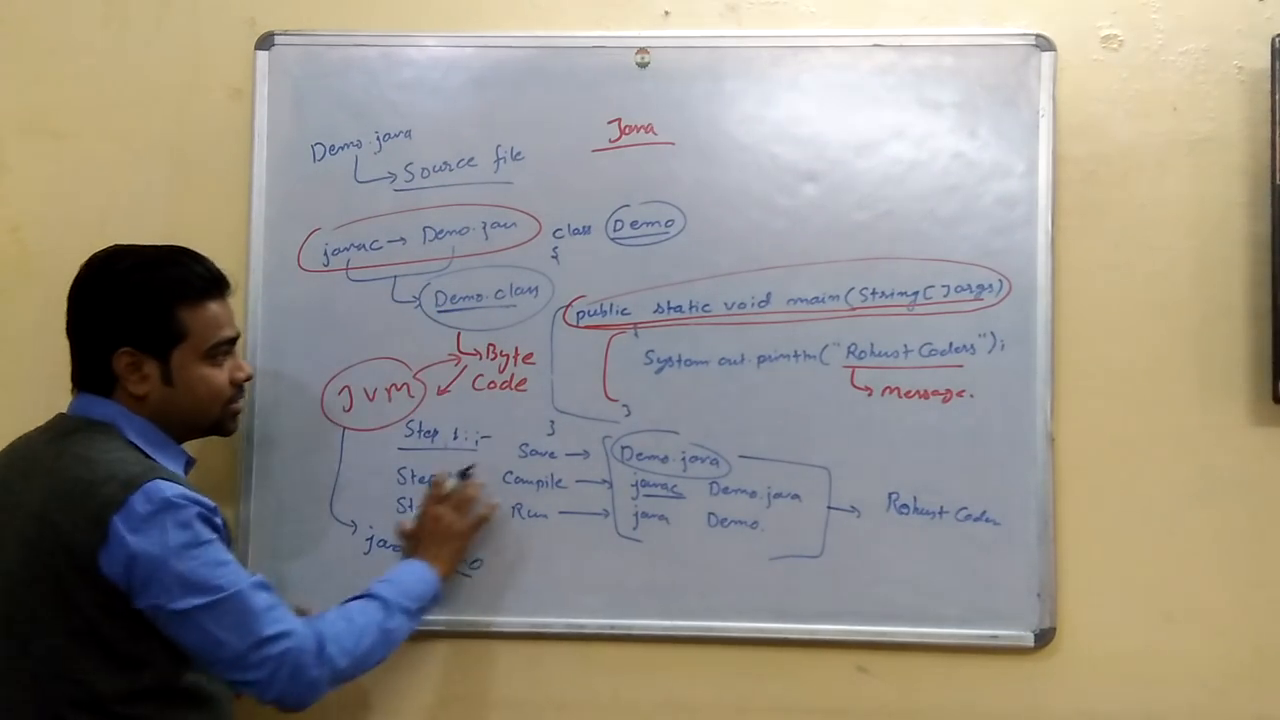 Java
Demo.java
Source file
javac → Demo.java
Demo.class
Byte
Code
JVM
class Demo
{
public static void main(String[] args)
{
System.out.println("Robust Coders");
Message.
}
}
Step 1:-
Save → Demo.java
Compile → javac Demo.java
Run → java Demo.
Robust Coder